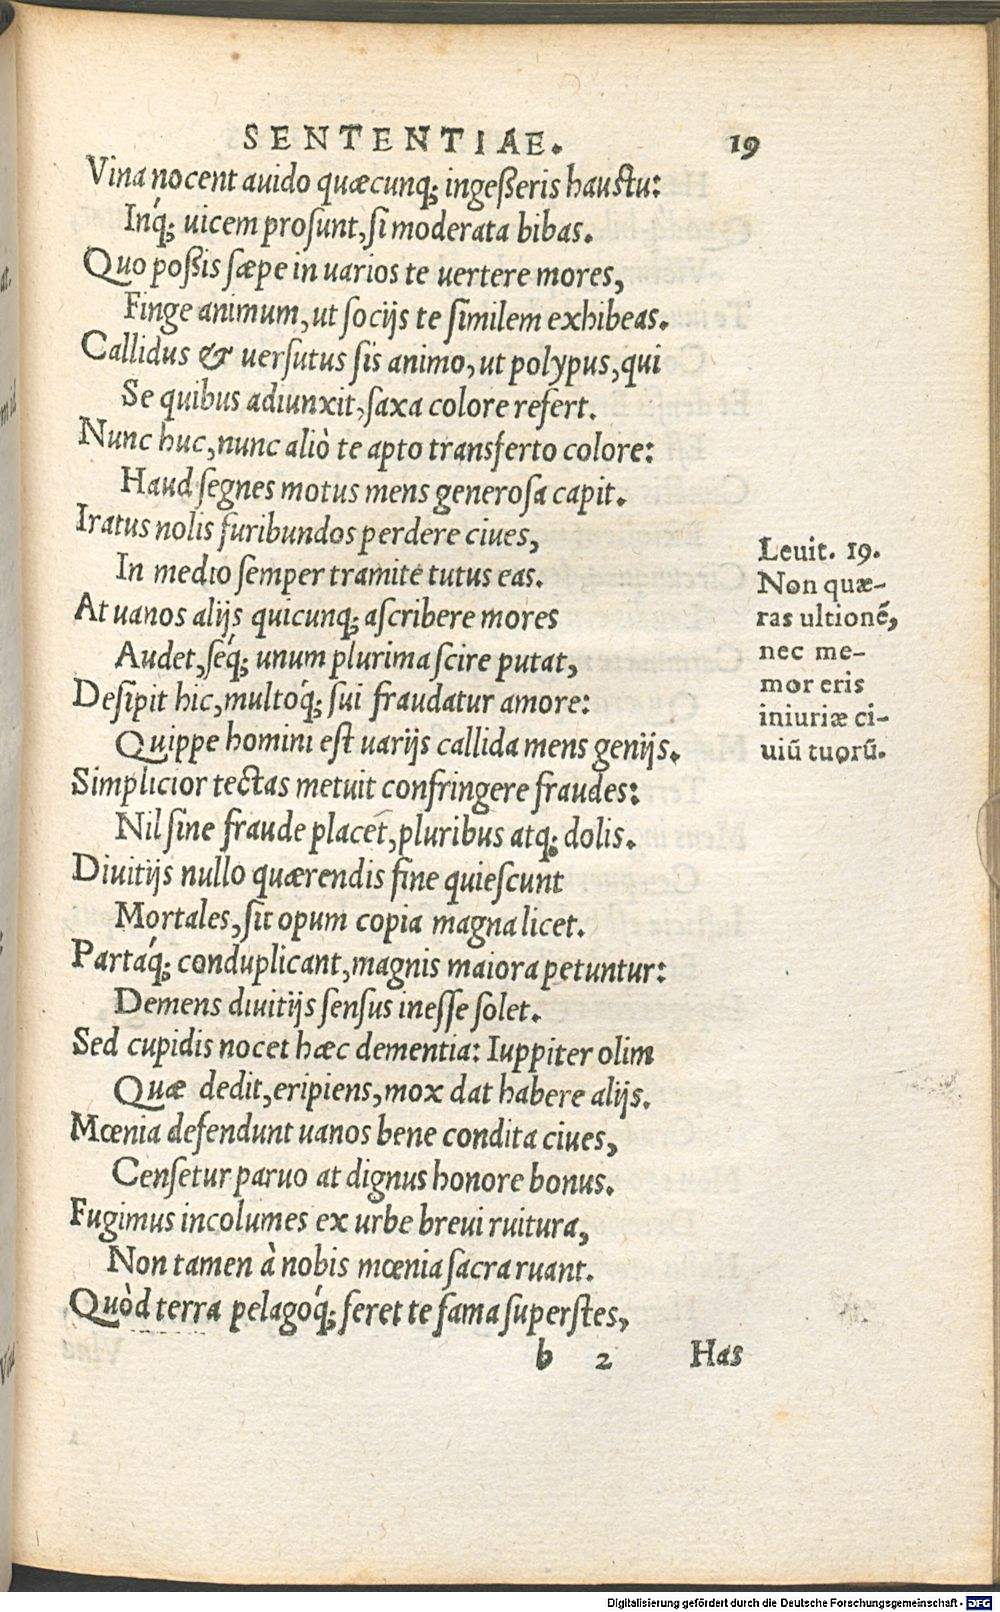 SENTENTIAE. 19
Vina nocent auido quæcunq; ingeßeris haustu:
Inq́; uicem prosunt, si moderata bibas.
Quo poßis sæpe in uarios te uertere mores,
Finge animum, ut socijs te similem exhibeas.
Callidus & uersutus sis animo, ut polypus, qui
Se quibus adiunxit, saxa colore refert.
Nunc huc, nunc aliò te apto transferto colore:
Haud segnes motus mens generosa capit.
Iratus nolis furibundos perdere ciues,
In medio semper tramite tutus eas.
At uanos alijs quicunq; ascribere mores
Audet, séq; unum plurima scire putat,
Desipit hic, multoq́; sui fraudatur amore:
Quippe homini est uarijs callida mens genijs.
Simplicior tectas metuit confringere fraudes:
Nil sine fraude placet, pluribus atq; dolis.
Diuitijs nullo quærendis fine quiescunt
Mortales, sit opum copia magna licet.
Partaq́; conduplicant, magnis maiora petuntur:
Demens diuitijs sensus inesse solet.
Sed cupidis nocet hæc dementia: Iuppiter olim
Quæ dedit, eripiens, mox dat habere alijs.
Mœnia defendunt uanos bene condita ciues,
Censetur paruo at dignus honore bonus.
Fugimus incolumes ex urbe breui ruitura,
Non tamen à nobis mœnia sacra ruant.
Quòd terra pelagoq́; feret te fama superstes,
b 2 Has
Leuit. 19.
Non quæ-
ras ultionē,
nec me-
mor eris
iniuriæ ci-
uiū tuorū.
Digitalisierung gefördert durch die Deutsche Forschungsgemeinschaft - DFG